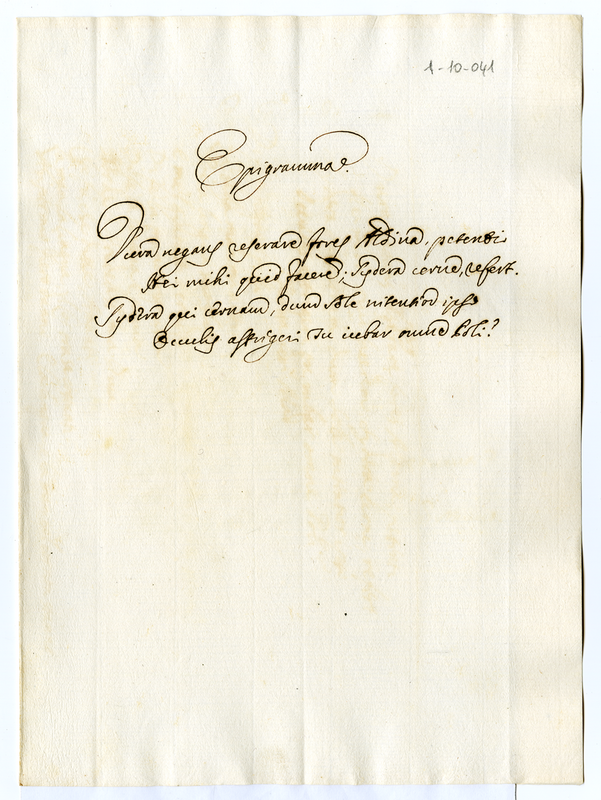 1-10-041
Epigramma.
negans reserare fores Aldina, petenti
Hei mihi quid facerem; sydera cerne, refert.
Sydera qui cernam, dum sole nitentior ipso
Occulis astrigeri tu iubar omne poli?